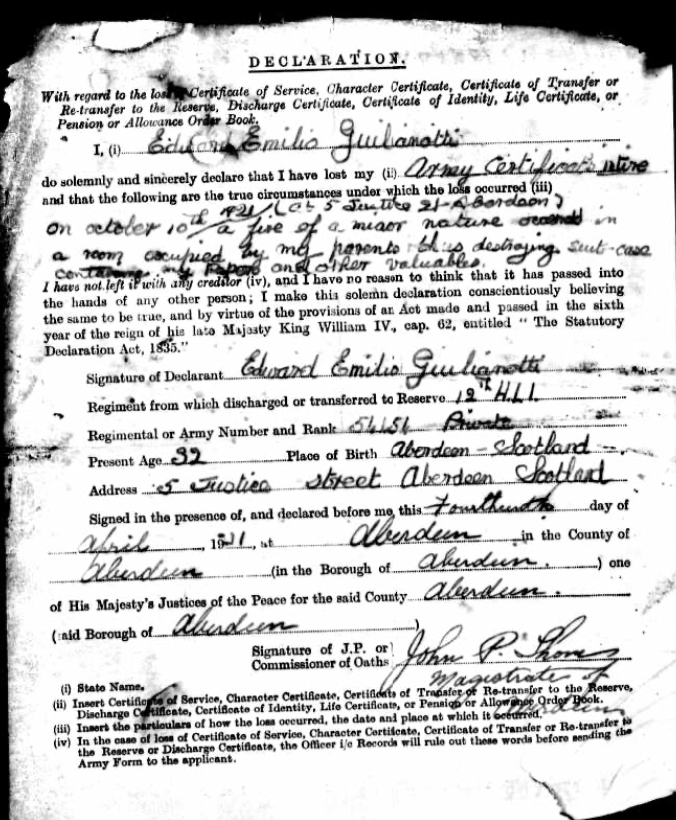 DECLARATION.
With regard to the loss of Certificate of Service, Character Certificate, Certificate of Transfer or
Re-transfer to the Reserve, Discharge Certificate, Certificate of Identity, Life Certificate, or
Pension or Allowance Order Book.
I, (i) Edward Emilio Guilianotti
do solemnly and sincerely declare that I have lost my (ii) Army Certificate
and that the following are the true circumstances under which the loss occurred (iii)
On october 10th 1921 (at 5 Justice St Aberdeen)
a fire of a minor nature occured in
a room occupied by my parents thus destroying suit-case
containing my papers and other valuables.
I have not left it with any creditor (iv), and I have no reason to think that it has passed into
the hands of any other person; I make this solemn declaration conscientiously believing
the same to be true, and by virtue of the provisions of an Act made and passed in the sixth
year of the reign of his late Majesty King William IV., cap. 62, entitled "The Statutory
Declaration Act, 1835."
Signature of Declarant Edward Emilio Guilianotti
Regiment from which discharged or transferred to Reserve 12th H.L.I.
Regimental or Army Number and Rank 54151 Private
Present Age 32 Place of Birth Aberdeen - Scotland
Address 5 Justice street Aberdeen Scotland
Signed in the presence of, and declared before me, this fourteenth day of
April, at Aberdeen in the County of
Aberdeen (in the Borough of Aberdeen.) one
of His Majesty's Justices of the Peace for the said County Aberdeen.
(said Borough of Aberdeen)
Signature of J.P. or
Commissioner of Oaths John P.
Magistrate of
Aberdeen
(i) State Name.
(ii) Insert Certificate of Service, Character Certificate, Certificate of Transfer or Re-transfer to the Reserve,
Discharge Certificate, Certificate of Identity, Life Certificate, or Pension or Allowance Order Book.
(iii) Insert the particulars of how the loss occurred, the date and place at which it occurred.
(iv) In the case of loss of Certificate of Service, Character Certificate, Certificate of Transfer or Re-transfer to
the Reserve or Discharge Certificate, the Officer i/c Records will rule out these words before sending the
Army Form to the applicant.